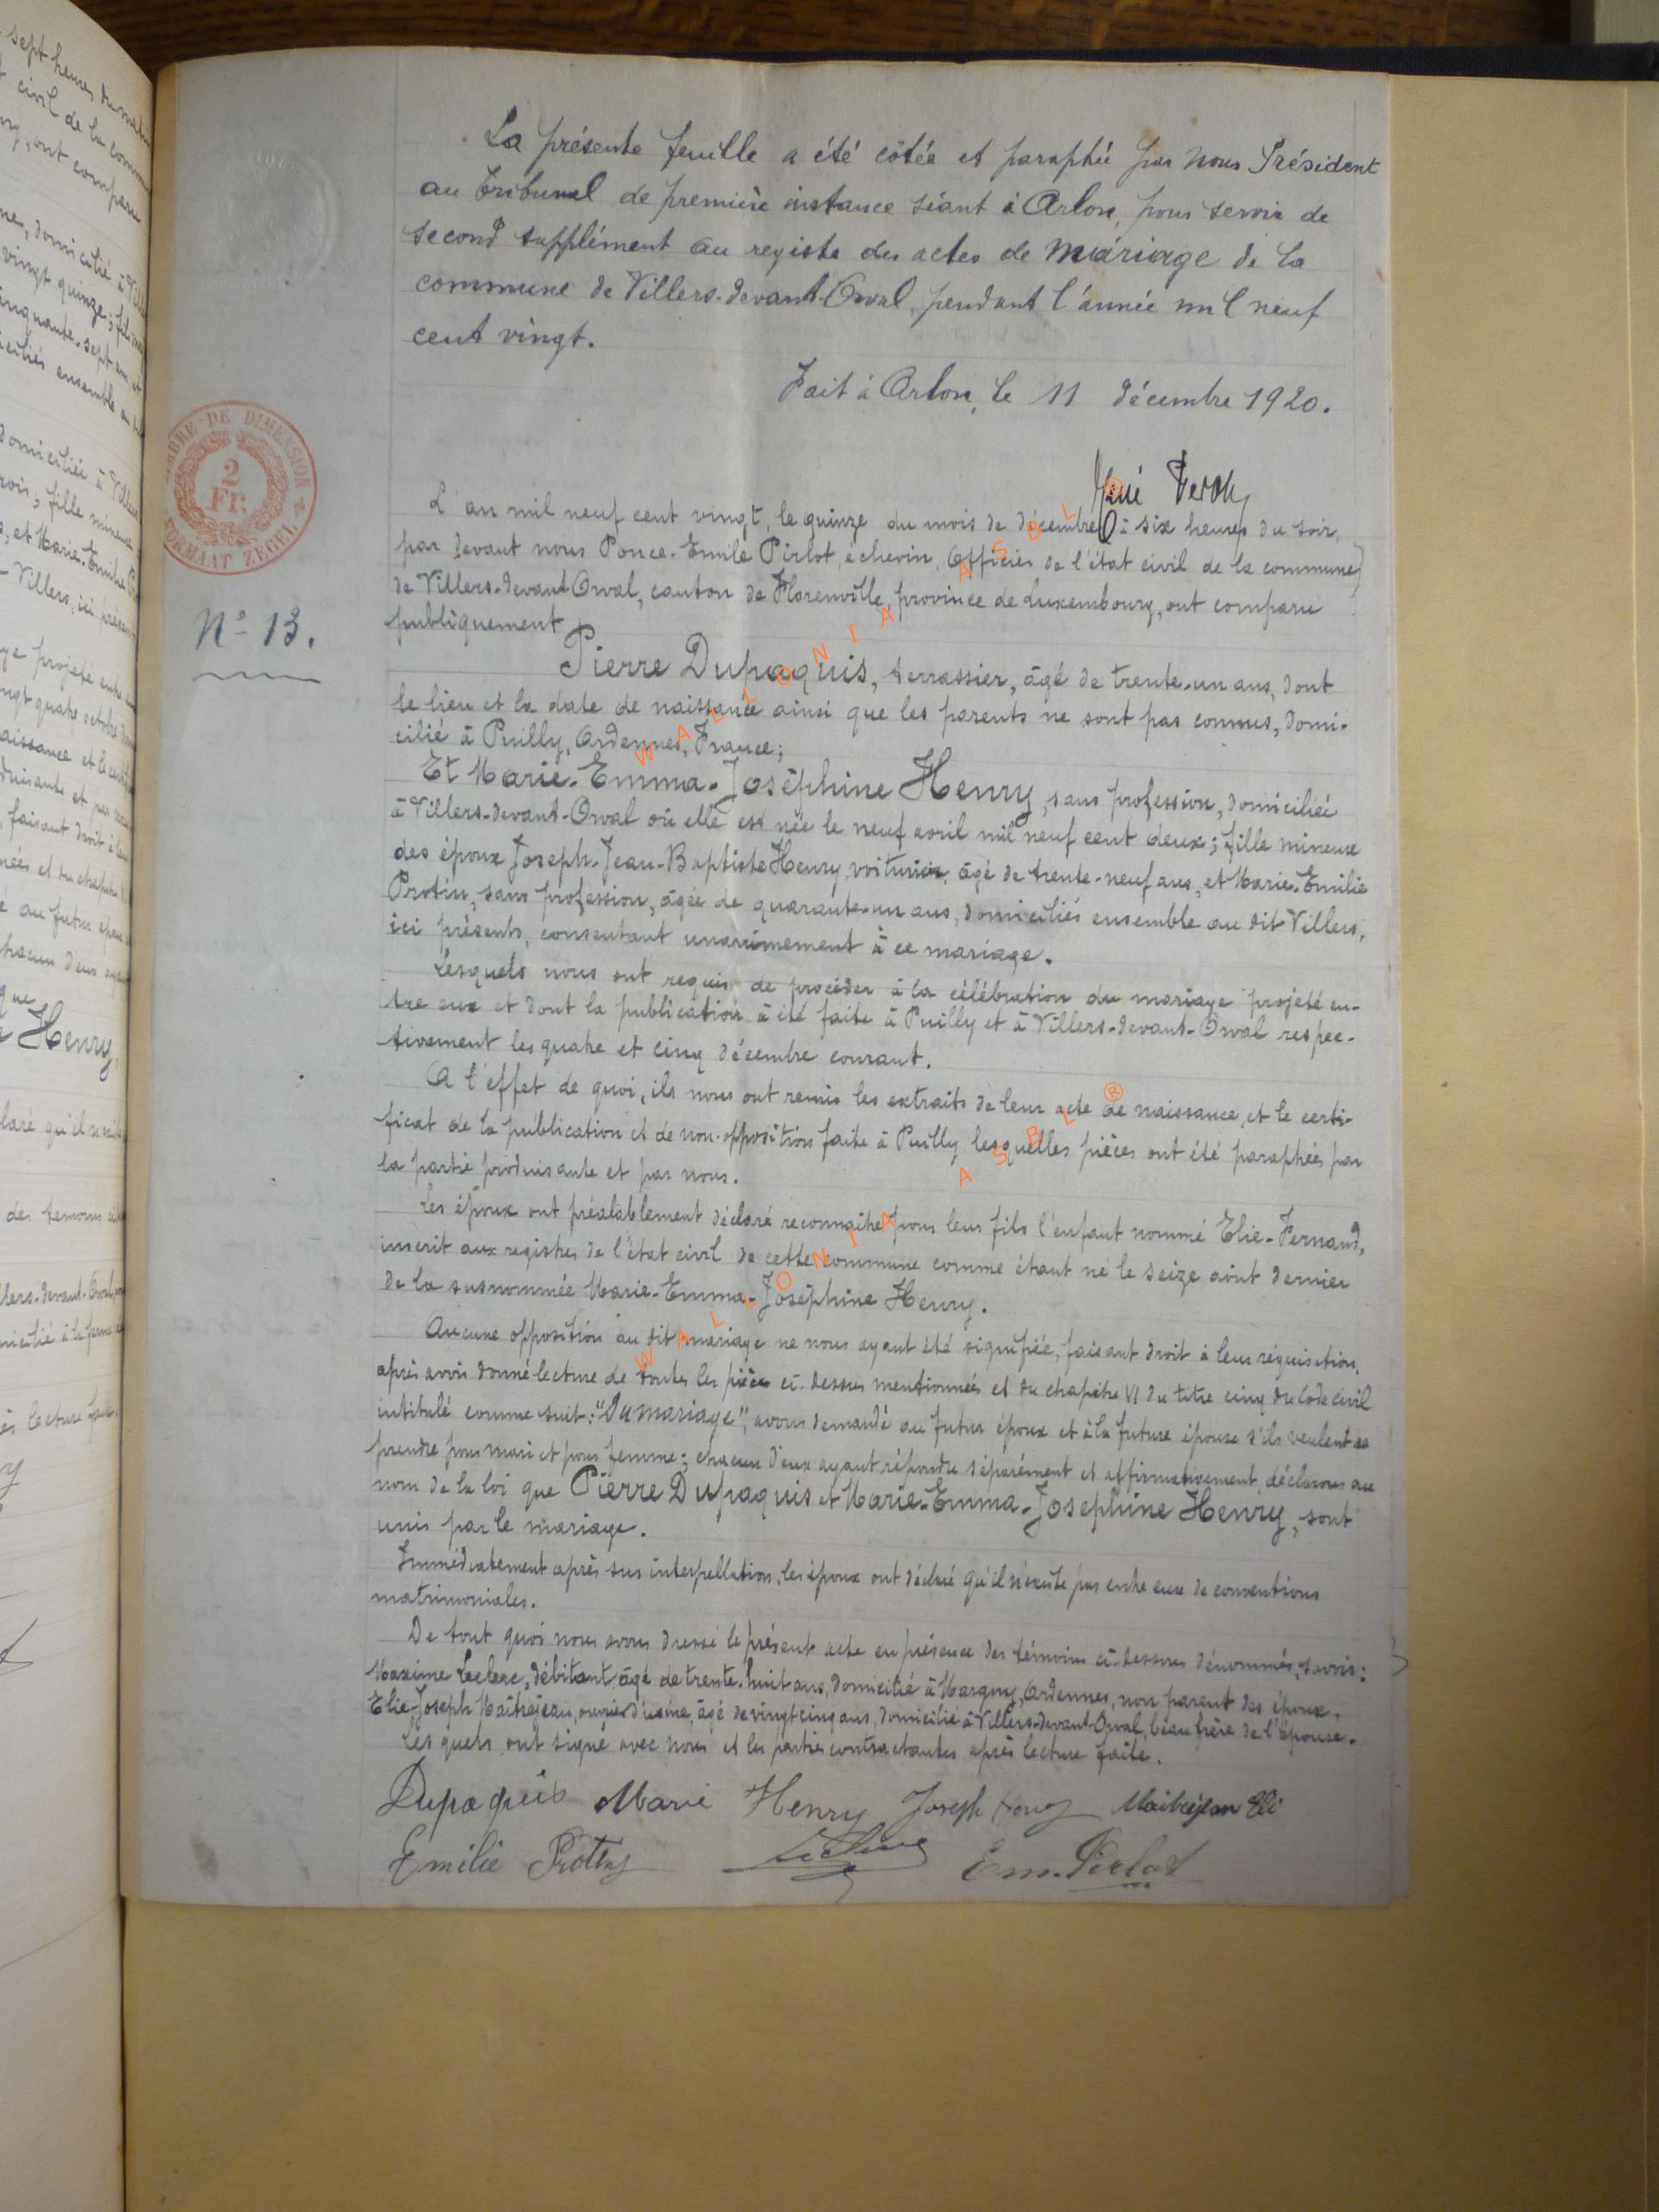 La présente feuille a été côtée et paraphée par nous Président
au tribunal de première instance séant à Arlon, pour servir de
second supplément au registre des actes de mariage de la
commune de Villers-devant-Orval, pendant l'année mil neuf
cent vingt.
Fait à Arlon, le 11 décembre 1920.
TIMBRE DE DIMENSION
2
Fr.
FORMAAT ZEGEL
L'an mil neuf cent vingt, le quinze du mois de décembre à six heures du soir,
par devant nous Ponce-Emile Pirlot échevin, Officier de l'état civil de la commune
de Villers-devant-Orval, canton de Florenville, province de Luxembourg, ont comparu
publiquement
N° 13.
Pierre Dupaquis, terrassier, âgé de trente-un ans, dont
le lieu et la date de naissance ainsi que les parents ne sont pas connus, domi-
cilié à Puilly, Ardennes, France;
Et Marie-Emma-Joséphine Henry, sans profession, domiciliée
à Villers-devant-Orval où elle est née le neuf avril mil neuf cent deux; fille mineure
des époux Joseph-Jean-Baptiste Henry, voiturier, âgé de trente-neuf ans, et Marie-Emilie
Protin, sans profession, âgée de quarante-un ans, domiciliés ensemble au dit Villers,
ici présents, consentant unanimement à ce mariage.
Lesquels nous ont requis de procéder à la célébration du mariage projeté en-
tre eux et dont la publication a été faite à Puilly et à Villers-devant-Orval respec-
tivement les quatre et cinq décembre courant.
A l'effet de quoi, ils nous ont remis les extraits de leur acte de naissance, et le certi-
ficat de la publication et de non-opposition faite à Puilly, lesquelles pièces ont été paraphées par
la partie produisante et par nous.
Les époux ont préalablement déclaré reconnaitre pour leur fils l'enfant nommé Elie-Fernand,
inscrit aux registres de l'état civil de cette commune comme étant né le seize août dernier
de la susnommée Marie-Emma-Joséphine Henry.
Aucune opposition au dit mariage ne nous ayant été signifiée, faisant droit à leur réquisition,
après avoir donné lecture de toutes les pièces ci-dessus mentionnées et du chapitre VI du titre cinq du Code civil
intitulé comme suit: "Du mariage", avons demandé au futur époux et à la future épouse s'ils veulent se
prendre pour mari et pour femme; chacun d'eux ayant répondu séparément et affirmativement, déclarons au
nom de la loi que Pierre Dupaquis et Marie-Emma-Josephine Henry, sont
unis par le mariage.
Immédiatement après sur interpellation, les époux ont déclaré qu'il n'existe pas entre eux de conventions
matrimoniales.
De tout quoi nous avons dressé le présent acte en présence des témoins ci-dessous dénommés, savoir:
Maxime Leclerc, débitant, âgé de trente-huit ans, domicilié à Margny, Ardennes, non parent des époux,
Elie-Joseph Maitrejean, ouvrier d'usine, âgé de vingt-cinq ans, domicilié à Villers-devant-Orval, beau frère de l'épouse.
Lesquels ont signé avec nous et les parties contractantes après lecture faite.
Dupaquis Marie Henry Joseph Henry Maitrejean Eli
Emilie Protin Em. Pirlot
WALLONIA ASBL ®
WALLONIA ASBL ®